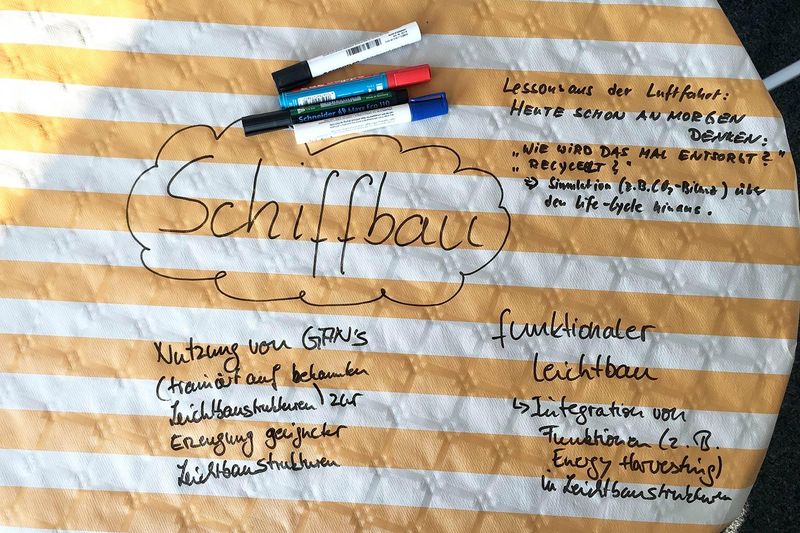 Schneider Maxx Eco 110
Lessons aus der Luftfahrt:
HEUTE SCHON AN MORGEN
DENKEN:
„WIE WIRD DAS MAL ENTSORGT?"
„RECYCELT?"
⇒ Simulation (z.B. CO₂-Bilanz) über
den life-cycle hinaus.
Schiffbau
Nutzung von GAN's
(trainiert auf bekannten
Leichtbaustrukturen) zur
Erzeugung geeigneter
Leichtbaustrukturen
funktionaler
leichtbau
↳ Integration von
Funktionen (z.B.
Energy Harvesting)
in Leichtbaustrukturen